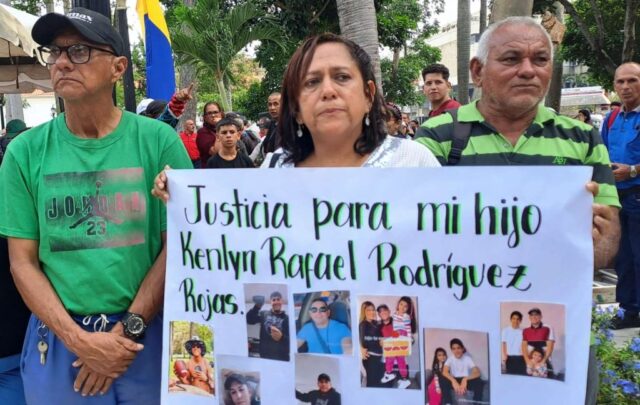 JORDAN
23
Justicia para mi hijo
Kenlyn Rafael Rodríguez
Rojas.